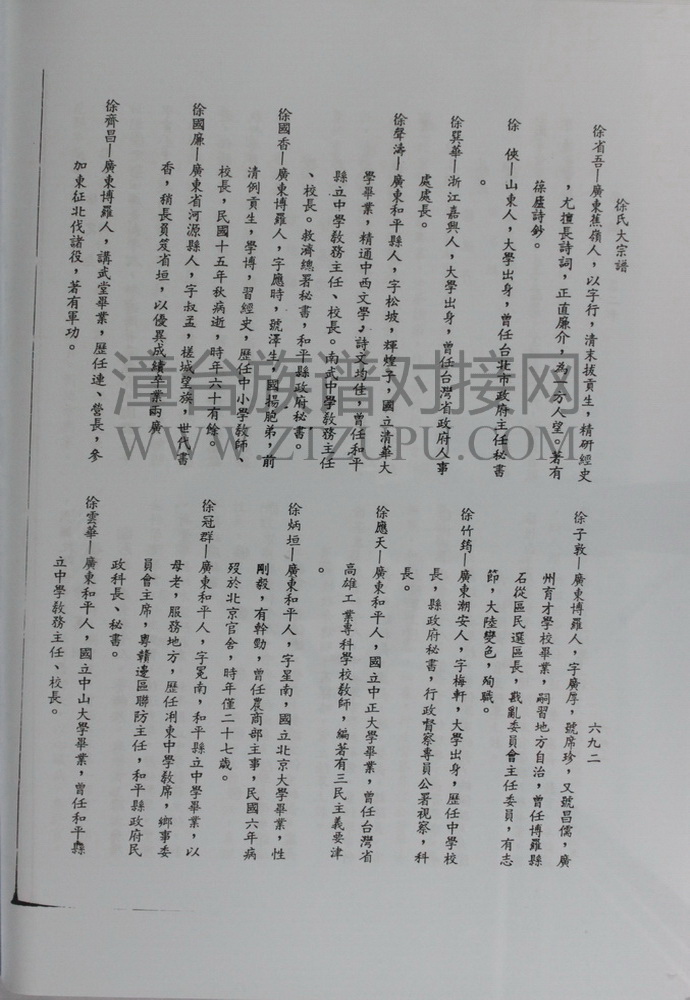 徐氏大宗譜
徐省吾—廣東蕉嶺人，以字行，清末拔貢生，精研經史
，尤擅長詩詞，正直廉介，為一方人望。著有
葆廬詩鈔。
徐　俠—山東人，大學出身，曾任台北市政府主任秘書
。
徐巽華—浙江嘉興人，大學出身，曾任台灣省政府人事
處處長。
徐聲濤—廣東和平縣人，字松坡，輝煌子，國立清華大
學畢業，精通中西文學，詩文均佳，曾任和平
縣立中學教務主任、校長。南武中學教務主任
、校長。救濟總署秘書，和平縣政府秘書。
徐國香—廣東博羅人，字應時，號澤生，國揚胞弟，前
清例貢生，學博，習經史，歷任中小學教師、
校長，民國十五年秋病逝，時年六十有餘。
徐國廉—廣東省河源縣人，字叔孟，槎城望族，世代書
香，稍長負笈省垣，以優異成績卒業兩廣
徐齊昌—廣東博羅人，講武堂畢業，歷任連、營長，參
加東征北伐諸役，著有軍功。
六九二
徐子敦—廣東博羅人，字廣厚，號席珍，又號昌儒，廣
州育才學校畢業，嗣習地方自治，曾任博羅縣
石從區民選區長，戡亂委員會主任委員，有志
節，大陸變色，殉職。
徐竹筠—廣東潮安人，字梅軒，大學出身，歷任中學校
長，縣政府秘書，行政督察專員公署視察，科
長。
徐應天—廣東和平人，國立中正大學畢業，曾任台灣省
高雄工業專科學校教師，編著有三民主義要津
。
徐炳垣—廣東和平人，字星南，國立北京大學畢業，性
剛毅，有幹勁，曾任農商部主事，民國六年病
歿於北京官舍，時年僅二十七歲。
徐冠群—廣東和平人，字冕南，和平縣立中學畢業，以
母老，服務地方，歷任浰東中學教席，鄉事委
員會主席，粵贛邊區聯防主任，和平縣政府民
政科長、秘書。
徐雲華—廣東和平人，國立中山大學畢業，曾任和平縣
立中學教務主任、校長。
漳台族谱对接网
WWW.ZTZUPU.COM